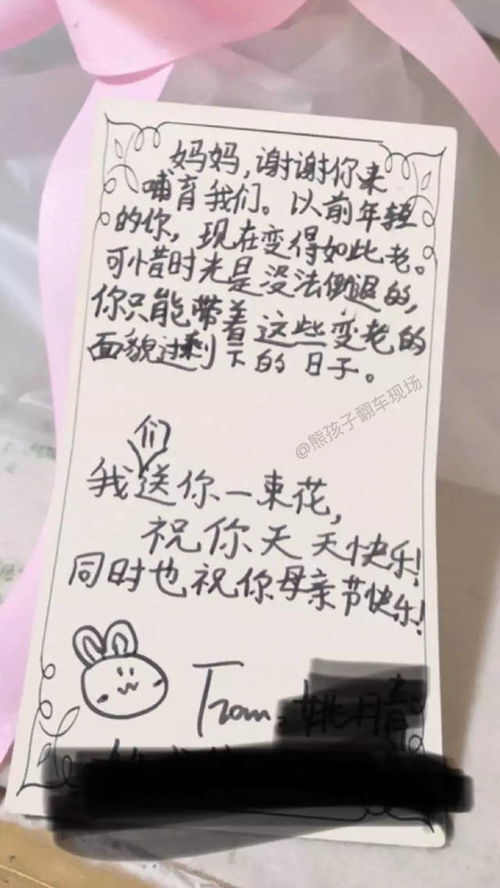 妈妈,谢谢你来
哺育我们。以前年轻
的你,现在变得如此老。
可惜时光是没法倒退的,
你只能带着这些变老的
面貌过剩下的日子。
@熊孩子翻车现场
们
我送你一束花,
祝你天天快乐!
同时也祝你母亲节快乐!
From:姚